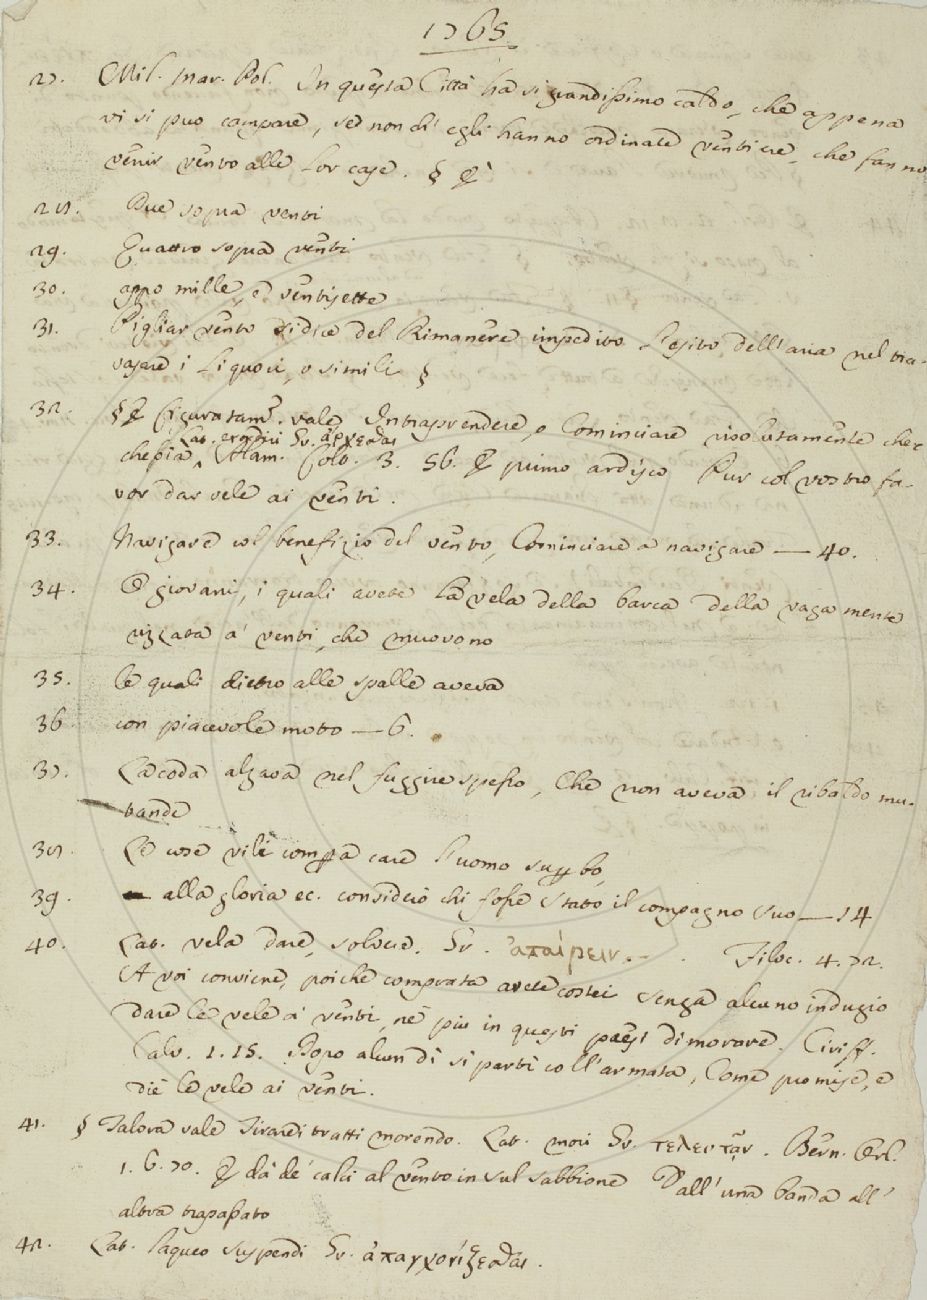 1765
27. Mil. Mar. Pol. In questa Città ha sì grandissimo caldo, che appena
vi si può campare, se non di' egli hanno ordinate ventiere, che fanno
venir vento alle lor case. §
28. Due sopra venti
29. Quattro sopra venti
30. appo mille, e ventisette
31. Pigliar vento si dice del Rimanere impedito l'esito dell'aria nel tra-
vasare i liquori, o simili §
32. § Figuratam. vale Intraprendere, o Cominciare risolutamente che
Lat. exordiri Gr. ἄρχεσθαι
chesia, Alam. Colt. 3. 56. E primo ardisco Pur col vostro fa-
vor dar vele ai venti.
33. Navigare col benefizio del vento, Cominciare a navigare — 40.
34. O giovani, i quali avete la vela della barca della vaga mente
rizzata a' venti, che muovono
35. le quali dietro alle spalle aveva
36 con piacevole motto — 6.
37. La coda alzava nel fuggire spesso, Che non aveva il ribaldo mu-
tande
38. Le cose vili compra care l'uomo superbo,
39. alla gloria ec. considerò chi fosse stato il compagno suo — 14
40. Lat. vela dare, solvere. Gr. ἀπαίρειν. — . Filoc. 4. 72.
A voi conviene, poichè comprata avete costei senza alcuno indugio
dare le vele a' venti, nè più in questi paesi dimorare. Ciriff.
Calv. 1. 15. Dopo alcun dì si partì coll'armata, Come promise, e
diè le vele ai venti.
41. § Talora vale Tirar di tratti morendo. Lat. mori Gr. τελευτᾷν. Bern. Orl.
1. 6. 70. E dà de' calci al vento in sul sabbione Dall'una banda all'
altra trapassato
42. Lat. laqueo suspendi Gr. ἀπαγχονίζεσθαι.